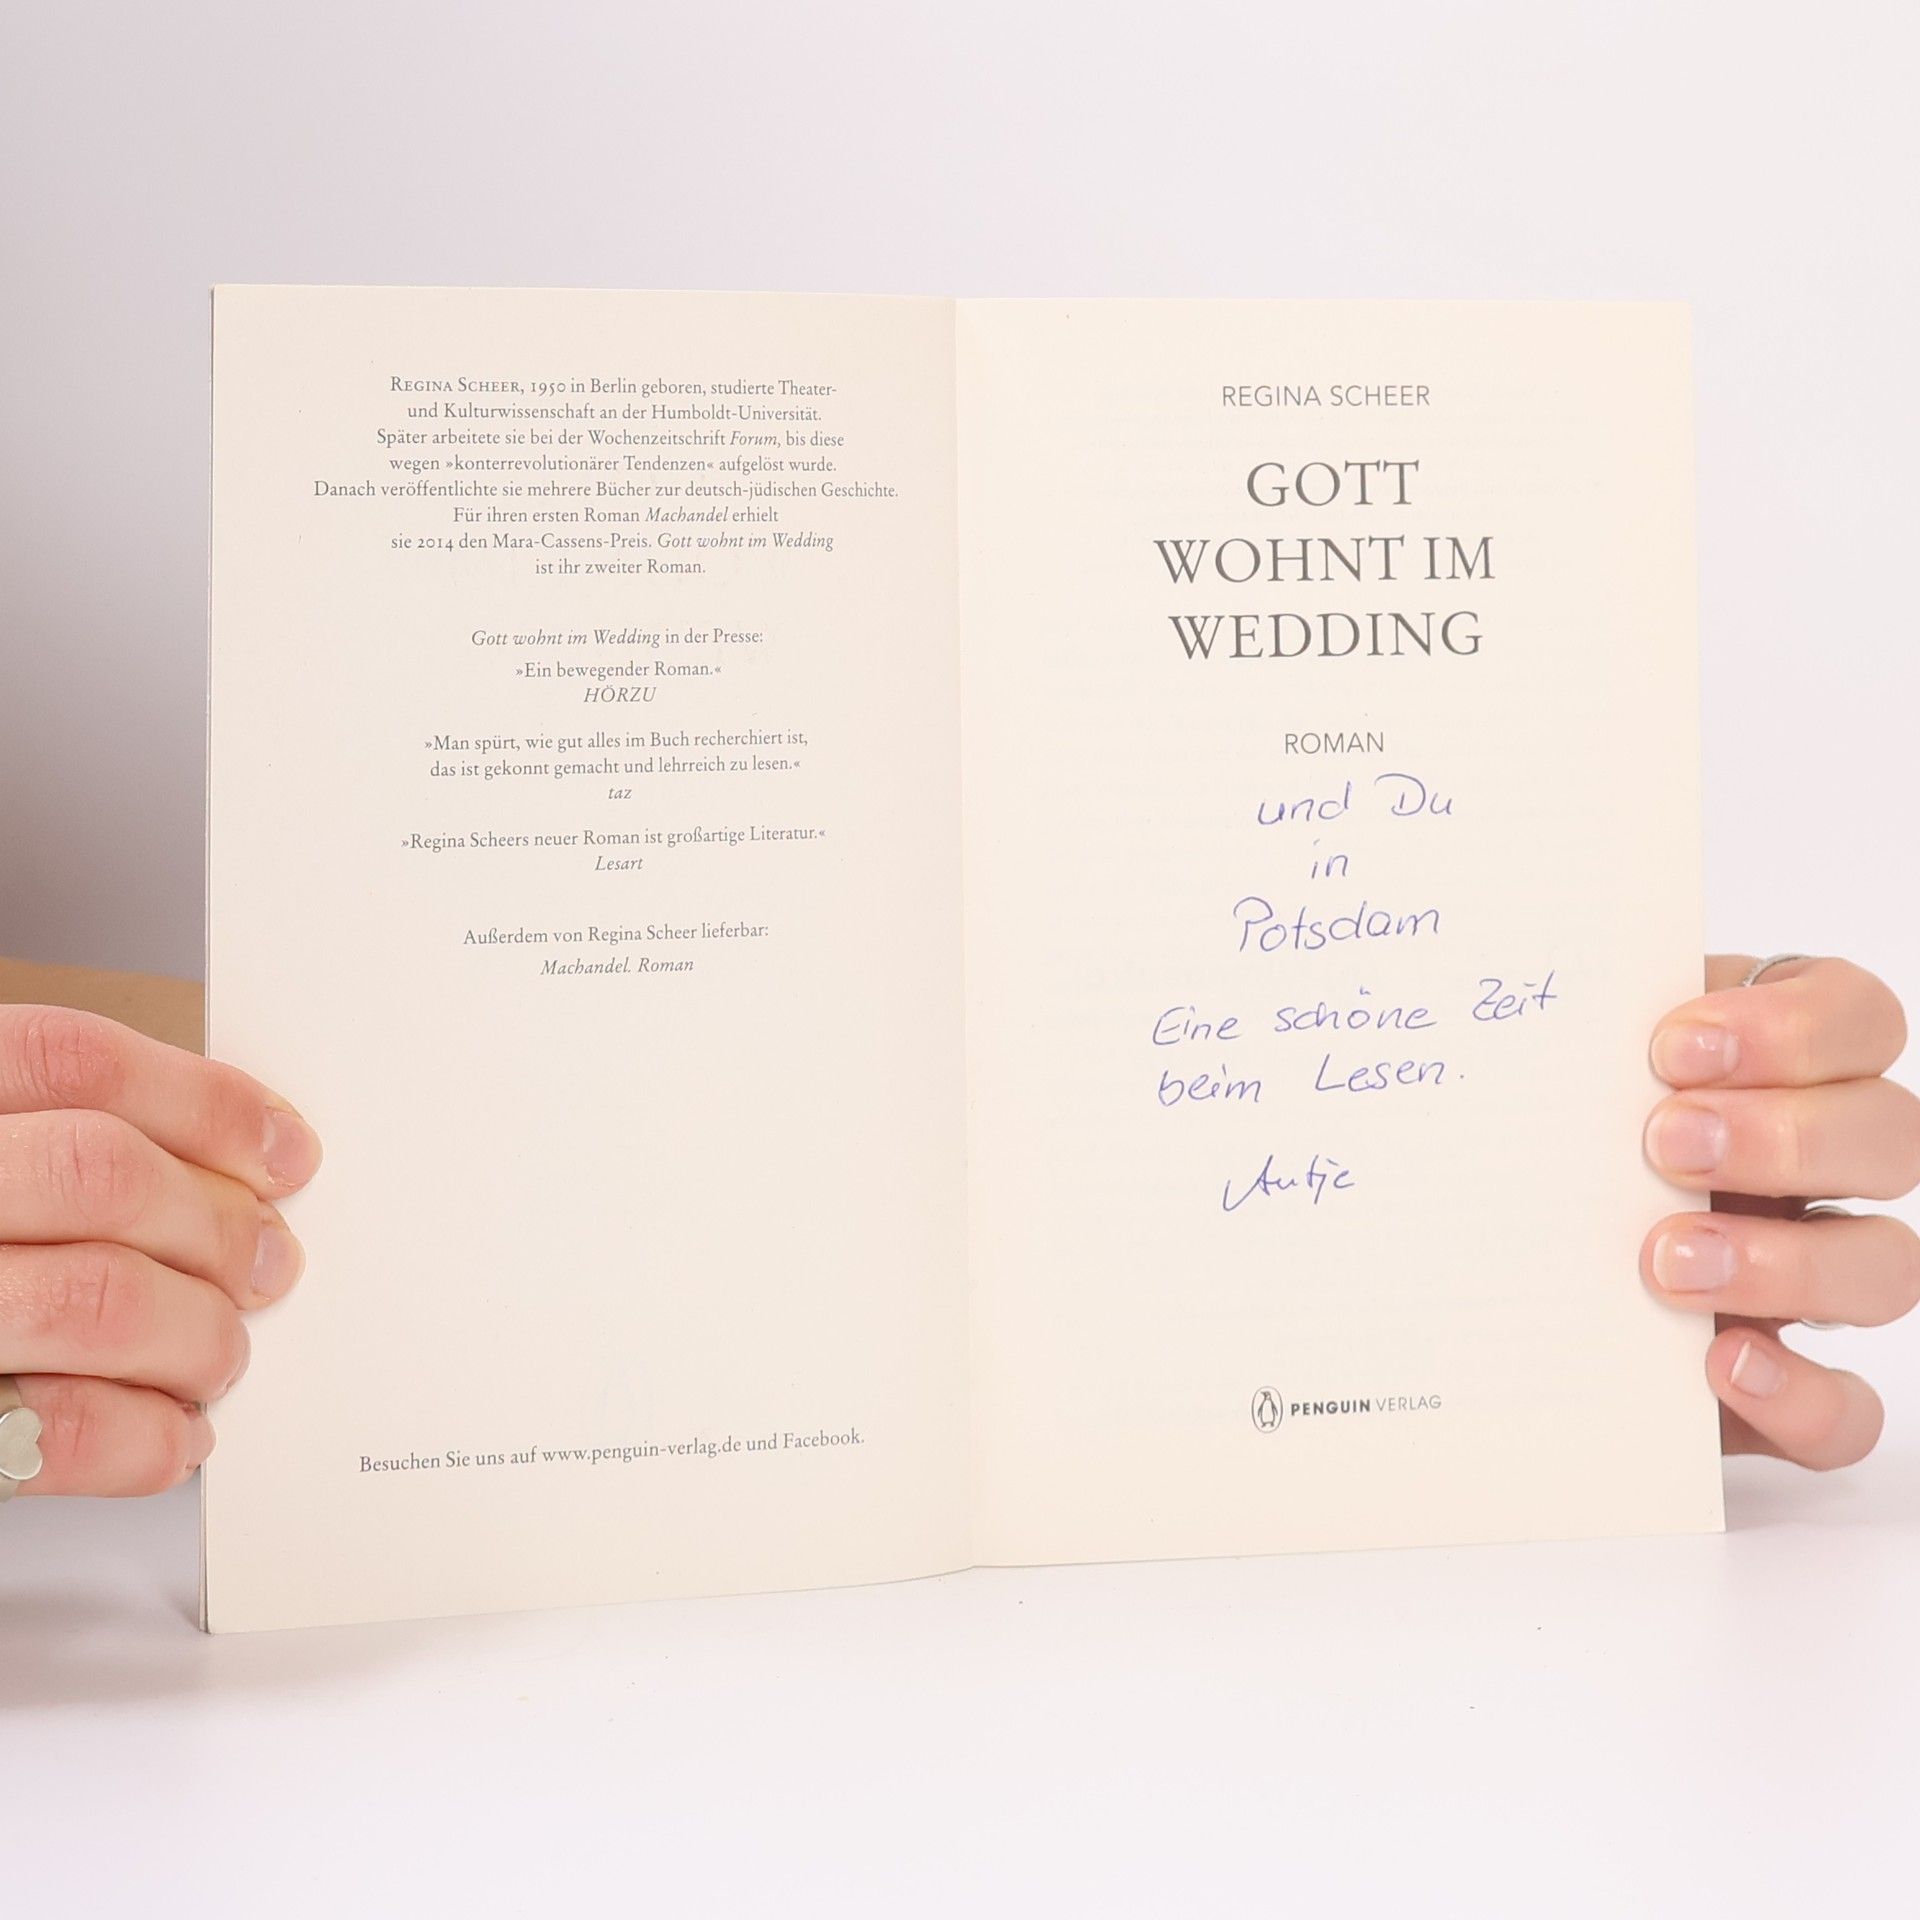 REGINA SCHEER, 1950 in Berlin geboren, studierte Theater-
und Kulturwissenschaft an der Humboldt-Universität.
Später arbeitete sie bei der Wochenzeitschrift Forum, bis diese
wegen »konterrevolutionärer Tendenzen« aufgelöst wurde.
Danach veröffentlichte sie mehrere Bücher zur deutsch-jüdischen Geschichte.
Für ihren ersten Roman Machandel erhielt
sie 2014 den Mara-Cassens-Preis. Gott wohnt im Wedding
ist ihr zweiter Roman.
Gott wohnt im Wedding in der Presse:
»Ein bewegender Roman.«
HÖRZU
»Man spürt, wie gut alles im Buch recherchiert ist,
das ist gekonnt gemacht und lehrreich zu lesen.«
taz
»Regina Scheers neuer Roman ist großartige Literatur.«
Lesart
Außerdem von Regina Scheer lieferbar:
Machandel. Roman
Besuchen Sie uns auf www.penguin-verlag.de und Facebook.
REGINA SCHEER
GOTT
WOHNT IM
WEDDING
ROMAN
und Du
in
Potsdam
Eine schöne Zeit
beim Lesen.
Antje
PENGUIN VERLAG